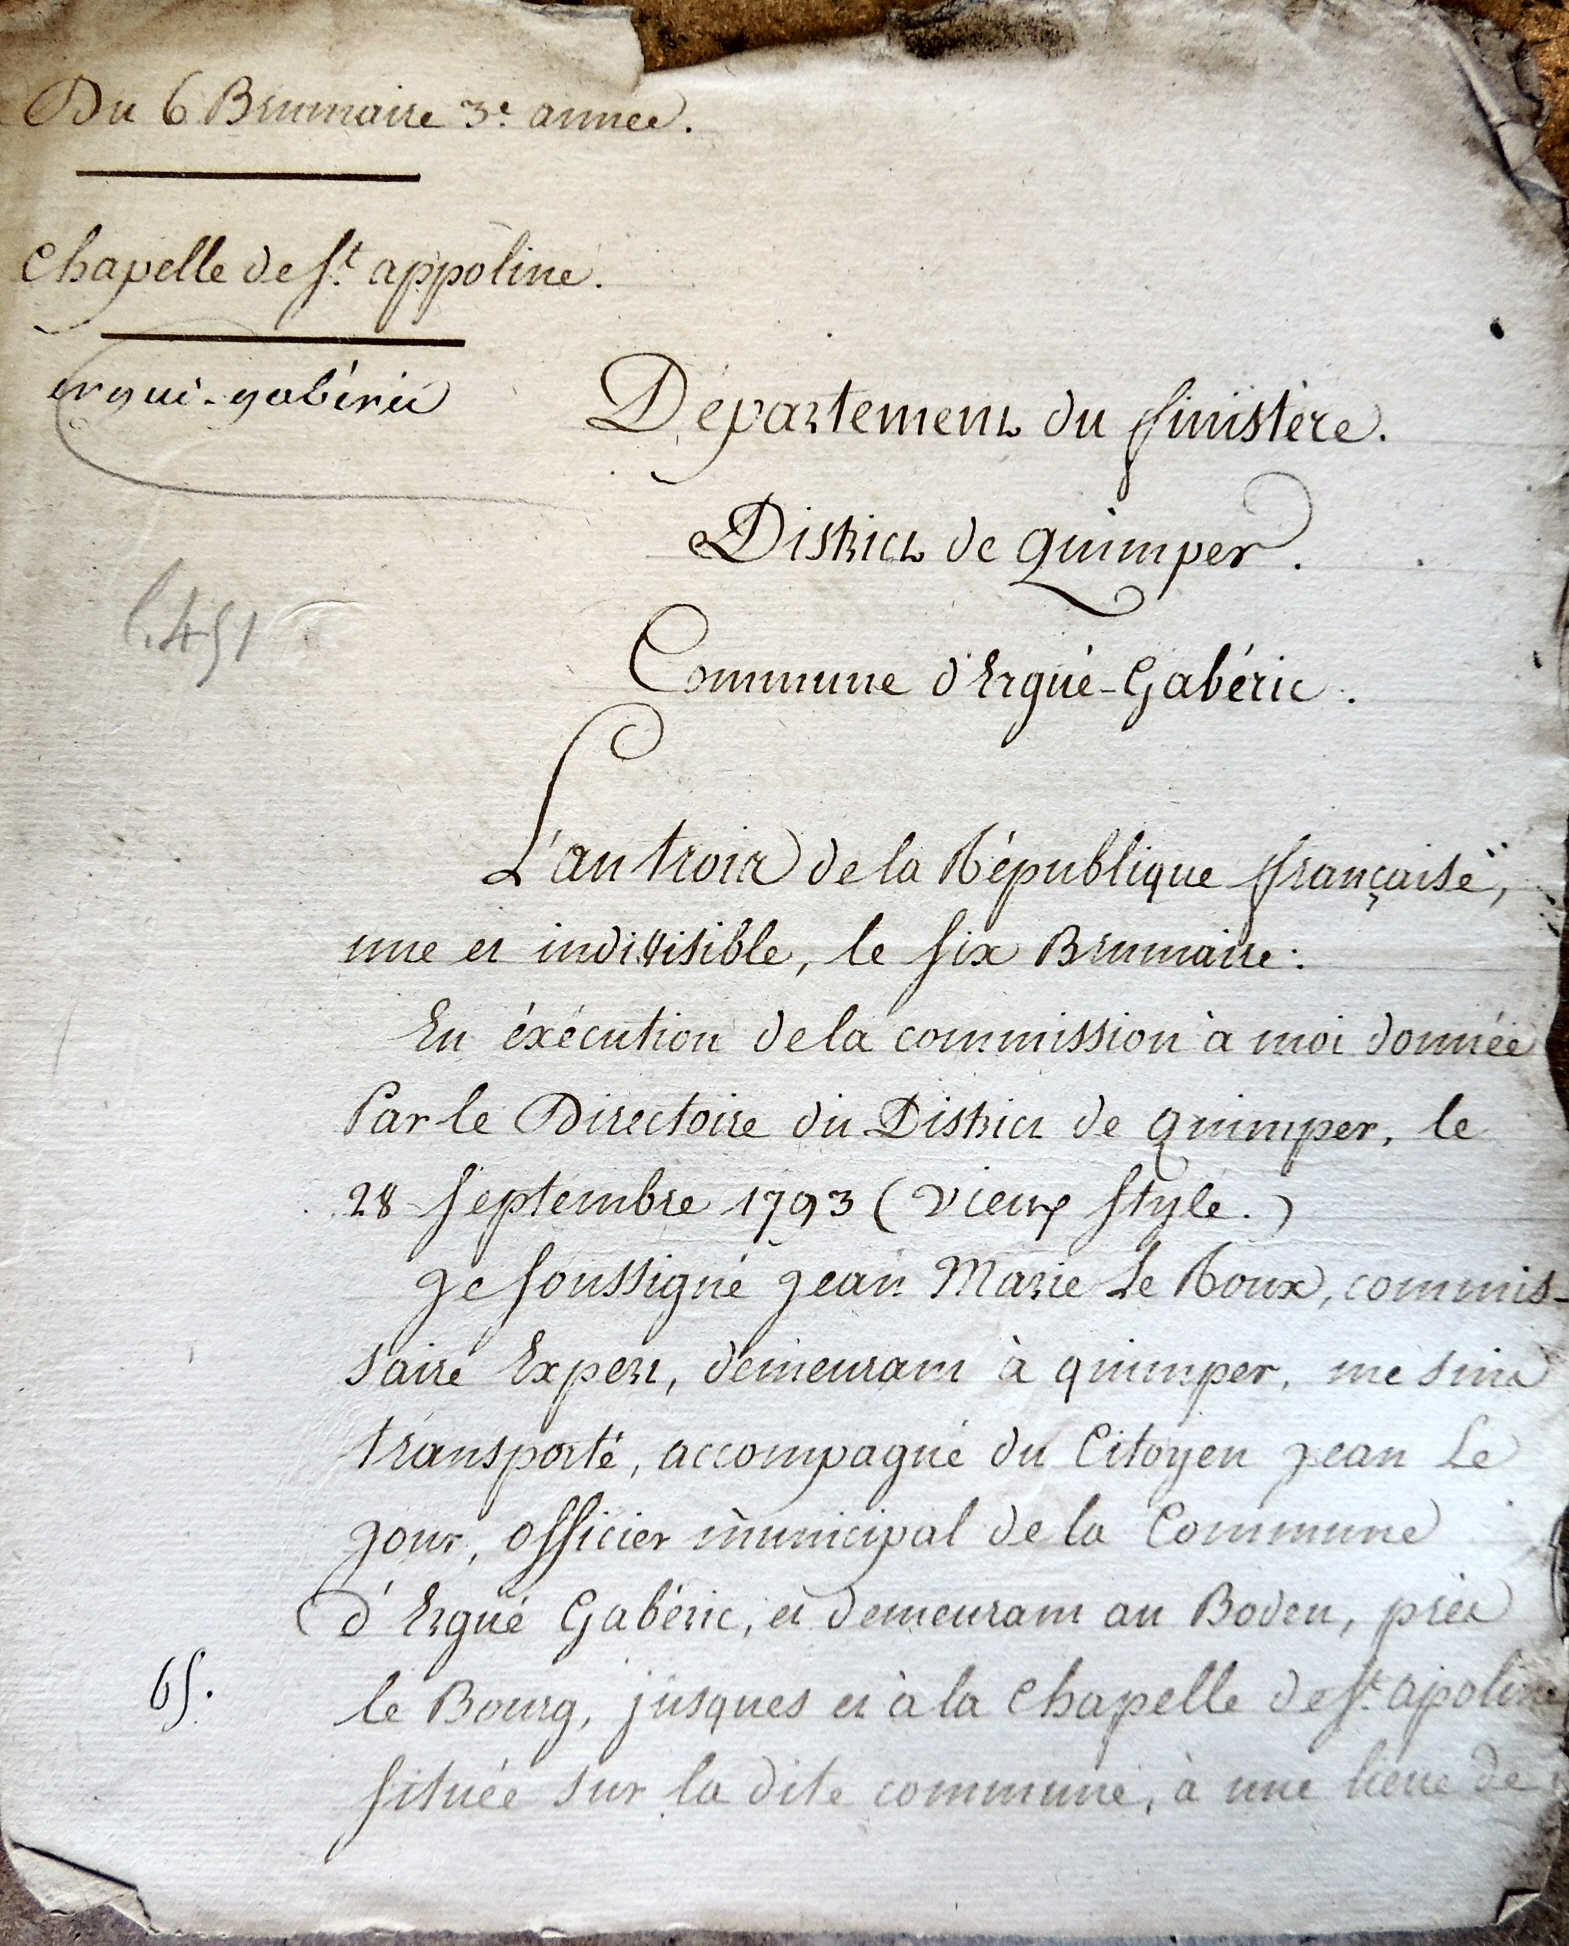 Du 6 Brumaire 3.e année.
Chapelle de St. appoline.
ergué-gabéric
Département du finistère.
District de quimper.
Commune d'Ergüé-Gabéric.
L'an trois de la République française,
une et indivisible, le six Brumaire:
En éxécution de la commission à moi donnée
Par le Directoire du District de quimper, le
28 septembre 1793 (vieux style.)
Je soussigné jean Marie Le Roux, commis-
saire Expert, demeurant à quimper, me suis
transporté, accompagné du Citoyen jean Le
jour, officier municipal de la Commune
d'Ergüé Gabéric, et demeurant au Boden, près
le Bourg, jusques et à la chapelle de St. apoline
située sur la dite commune, à une lieue de